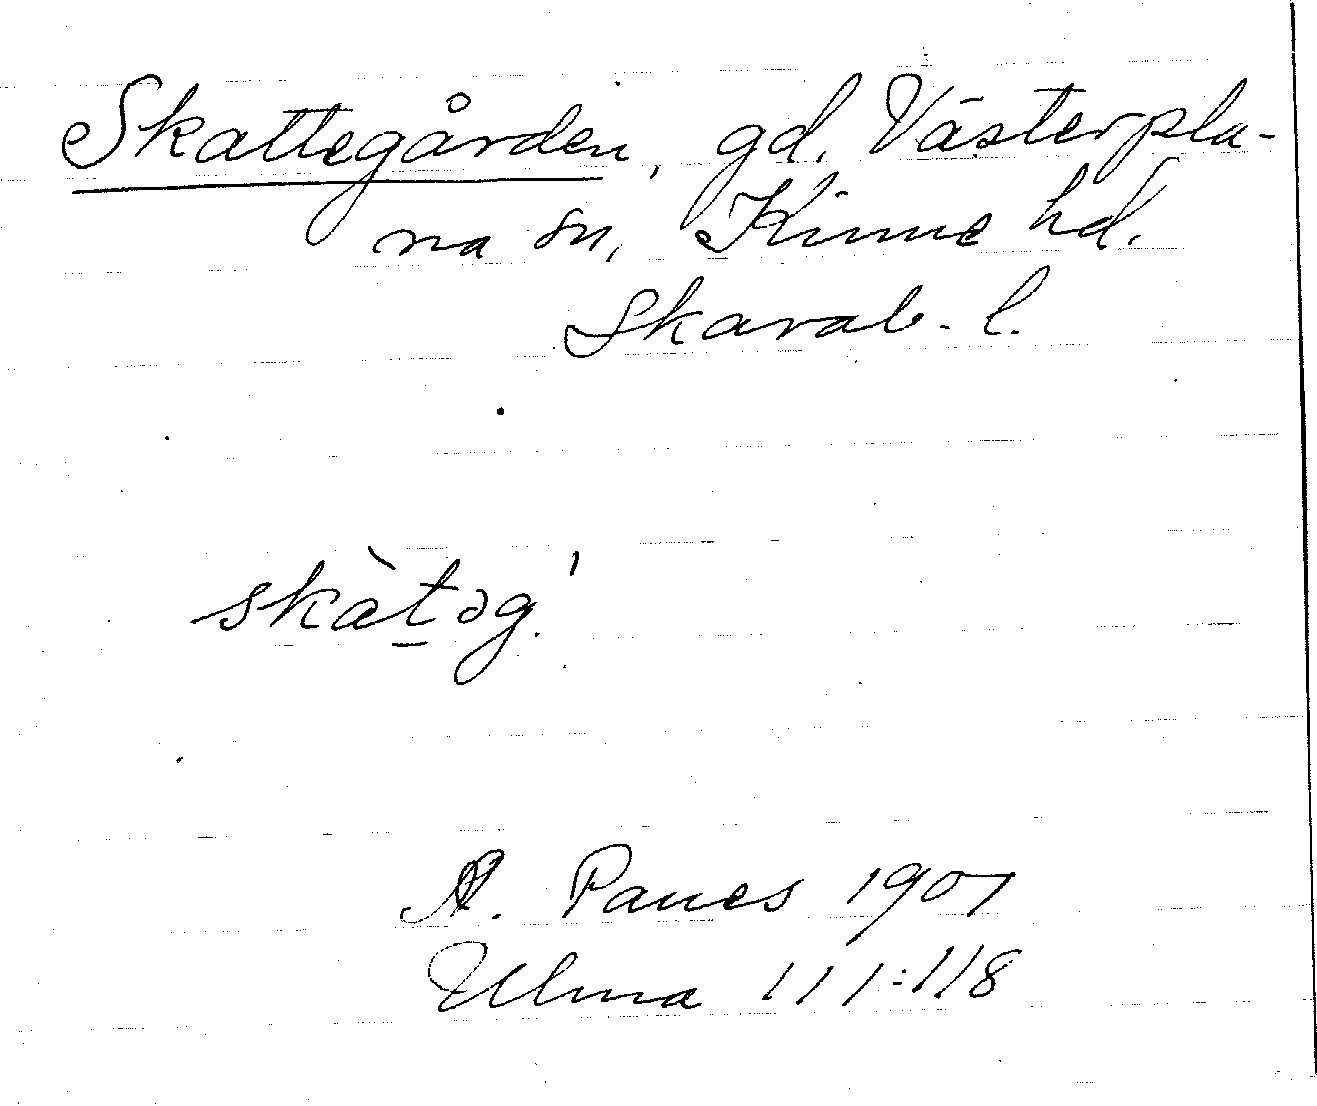 Skattegården, gd. Västerpla-
na sn, Kinne hd.
Skarab. l.
skàt̲əg.'
A. Panes 1901
Ulma 111:118